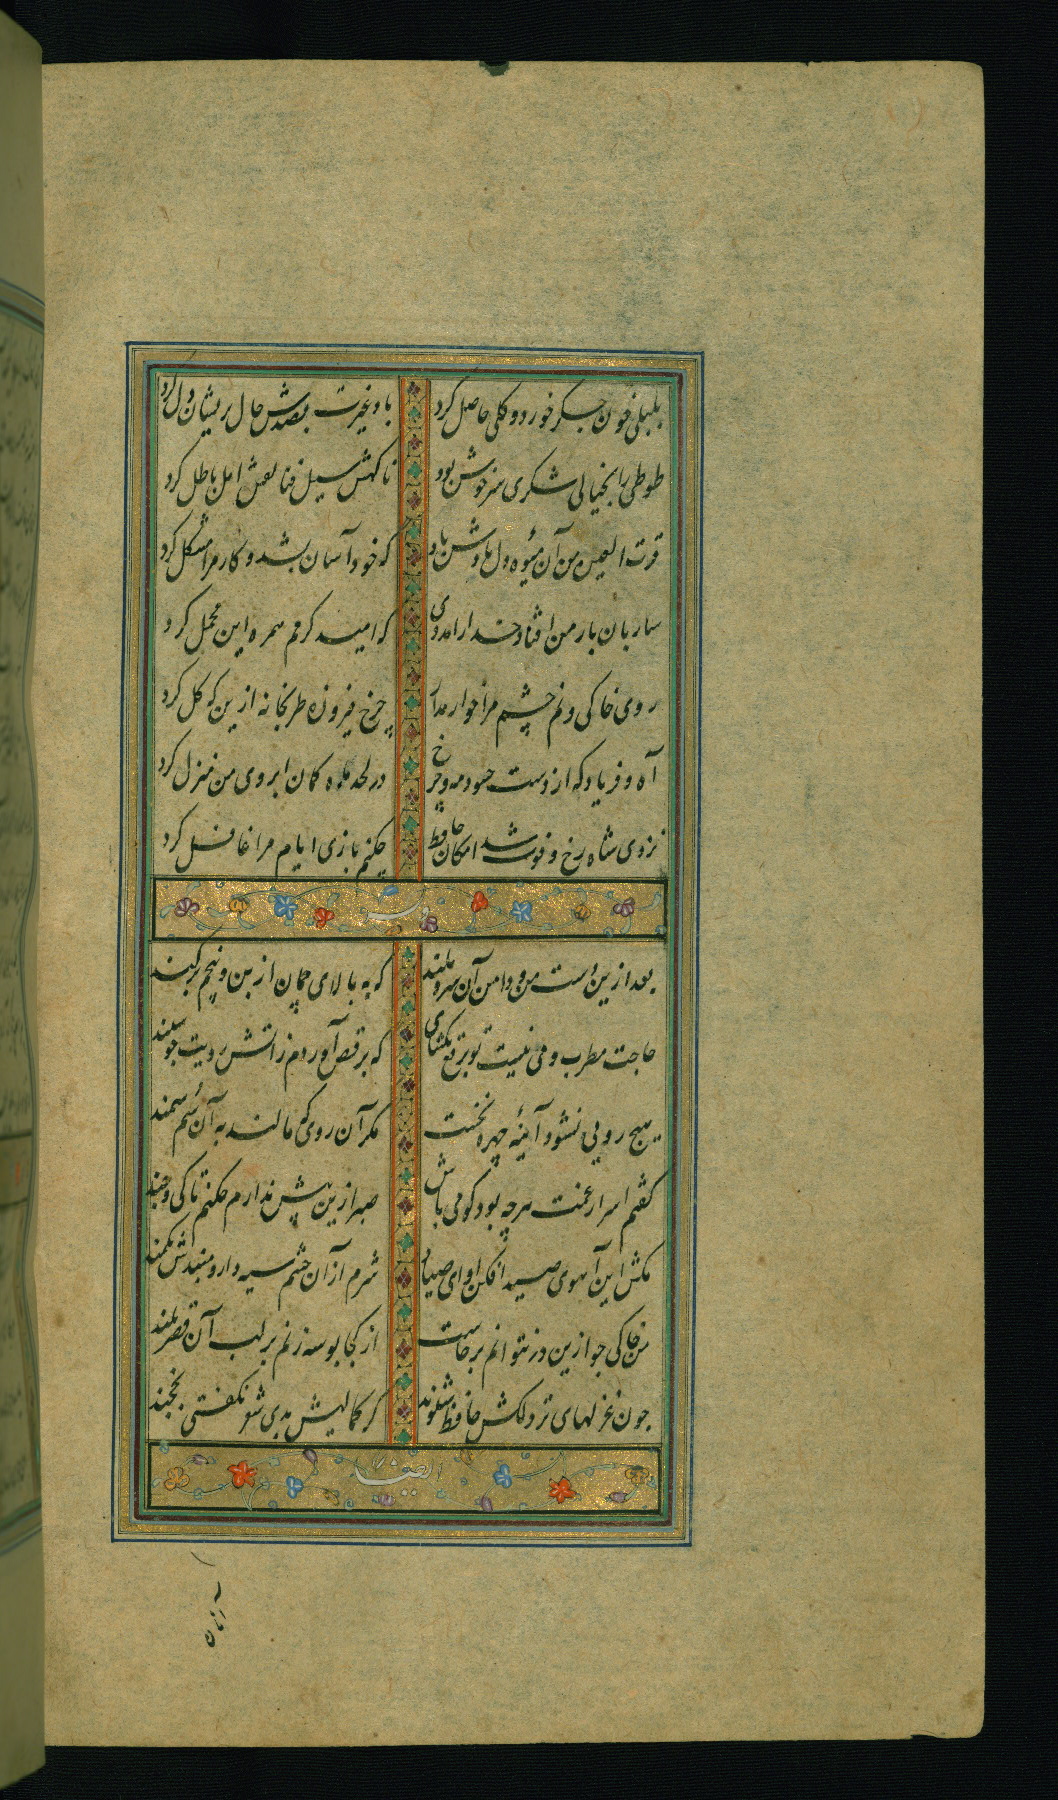 بلبلی خون جگر خورد و گلی حاصل کرد
باد غیرت بصدش حال پریشان دل کرد
طوطی را بخیالی شکری سرخوش بود
ناگهش سیل فنا نقش امل باطل کرد
قرت العین من آن میوه دل یادش باد
که خود آسان بشد و کار مرا مشکل کرد
ساربان بار من افتاد خدا را مددی
که امید کرمم همره این محمل کرد
روی خاکی و نم چشم مرا خوار مدار
چرخ فیروزه طربخانه ازین که گل کرد
آه و فریاد که از دست حسود مه و چرخ
در لحد ماه کمان ابروی من منزل کرد
نزدی شاه رخ و فوت شد امکان حافظ
چکنم بازی ایام مرا غافل کرد
بعد ازین دست من و دامن آن سرو بلند
که به بالای چمان از بن و بیخم برکند
حاجت مطرب و می نیست تو برقع بگشای
که برقص آوردم ز آتش رویت چو سپند
هیچ رویی نشود آینه چهره بخت
مگر آن روی که مالند به آن سم سمند
گفتم اسرار غمت هرچه بود گو می باش
صبر ازین بیش ندارم چکنم تا کی و چند
مکش این آهوی صید افکن او ای صیاد
شرم از آن چشم سیه دار و مبندش بکمند
من خاکی چو ازین در نتوانم برخاست
از کجا بوسه زنم بر لب آن قصر بلند
چون غزلهای تر دلکش حافظ شنوند
گر کمالیش بدی شعر نگفتی بخجند
ایضا
آنان